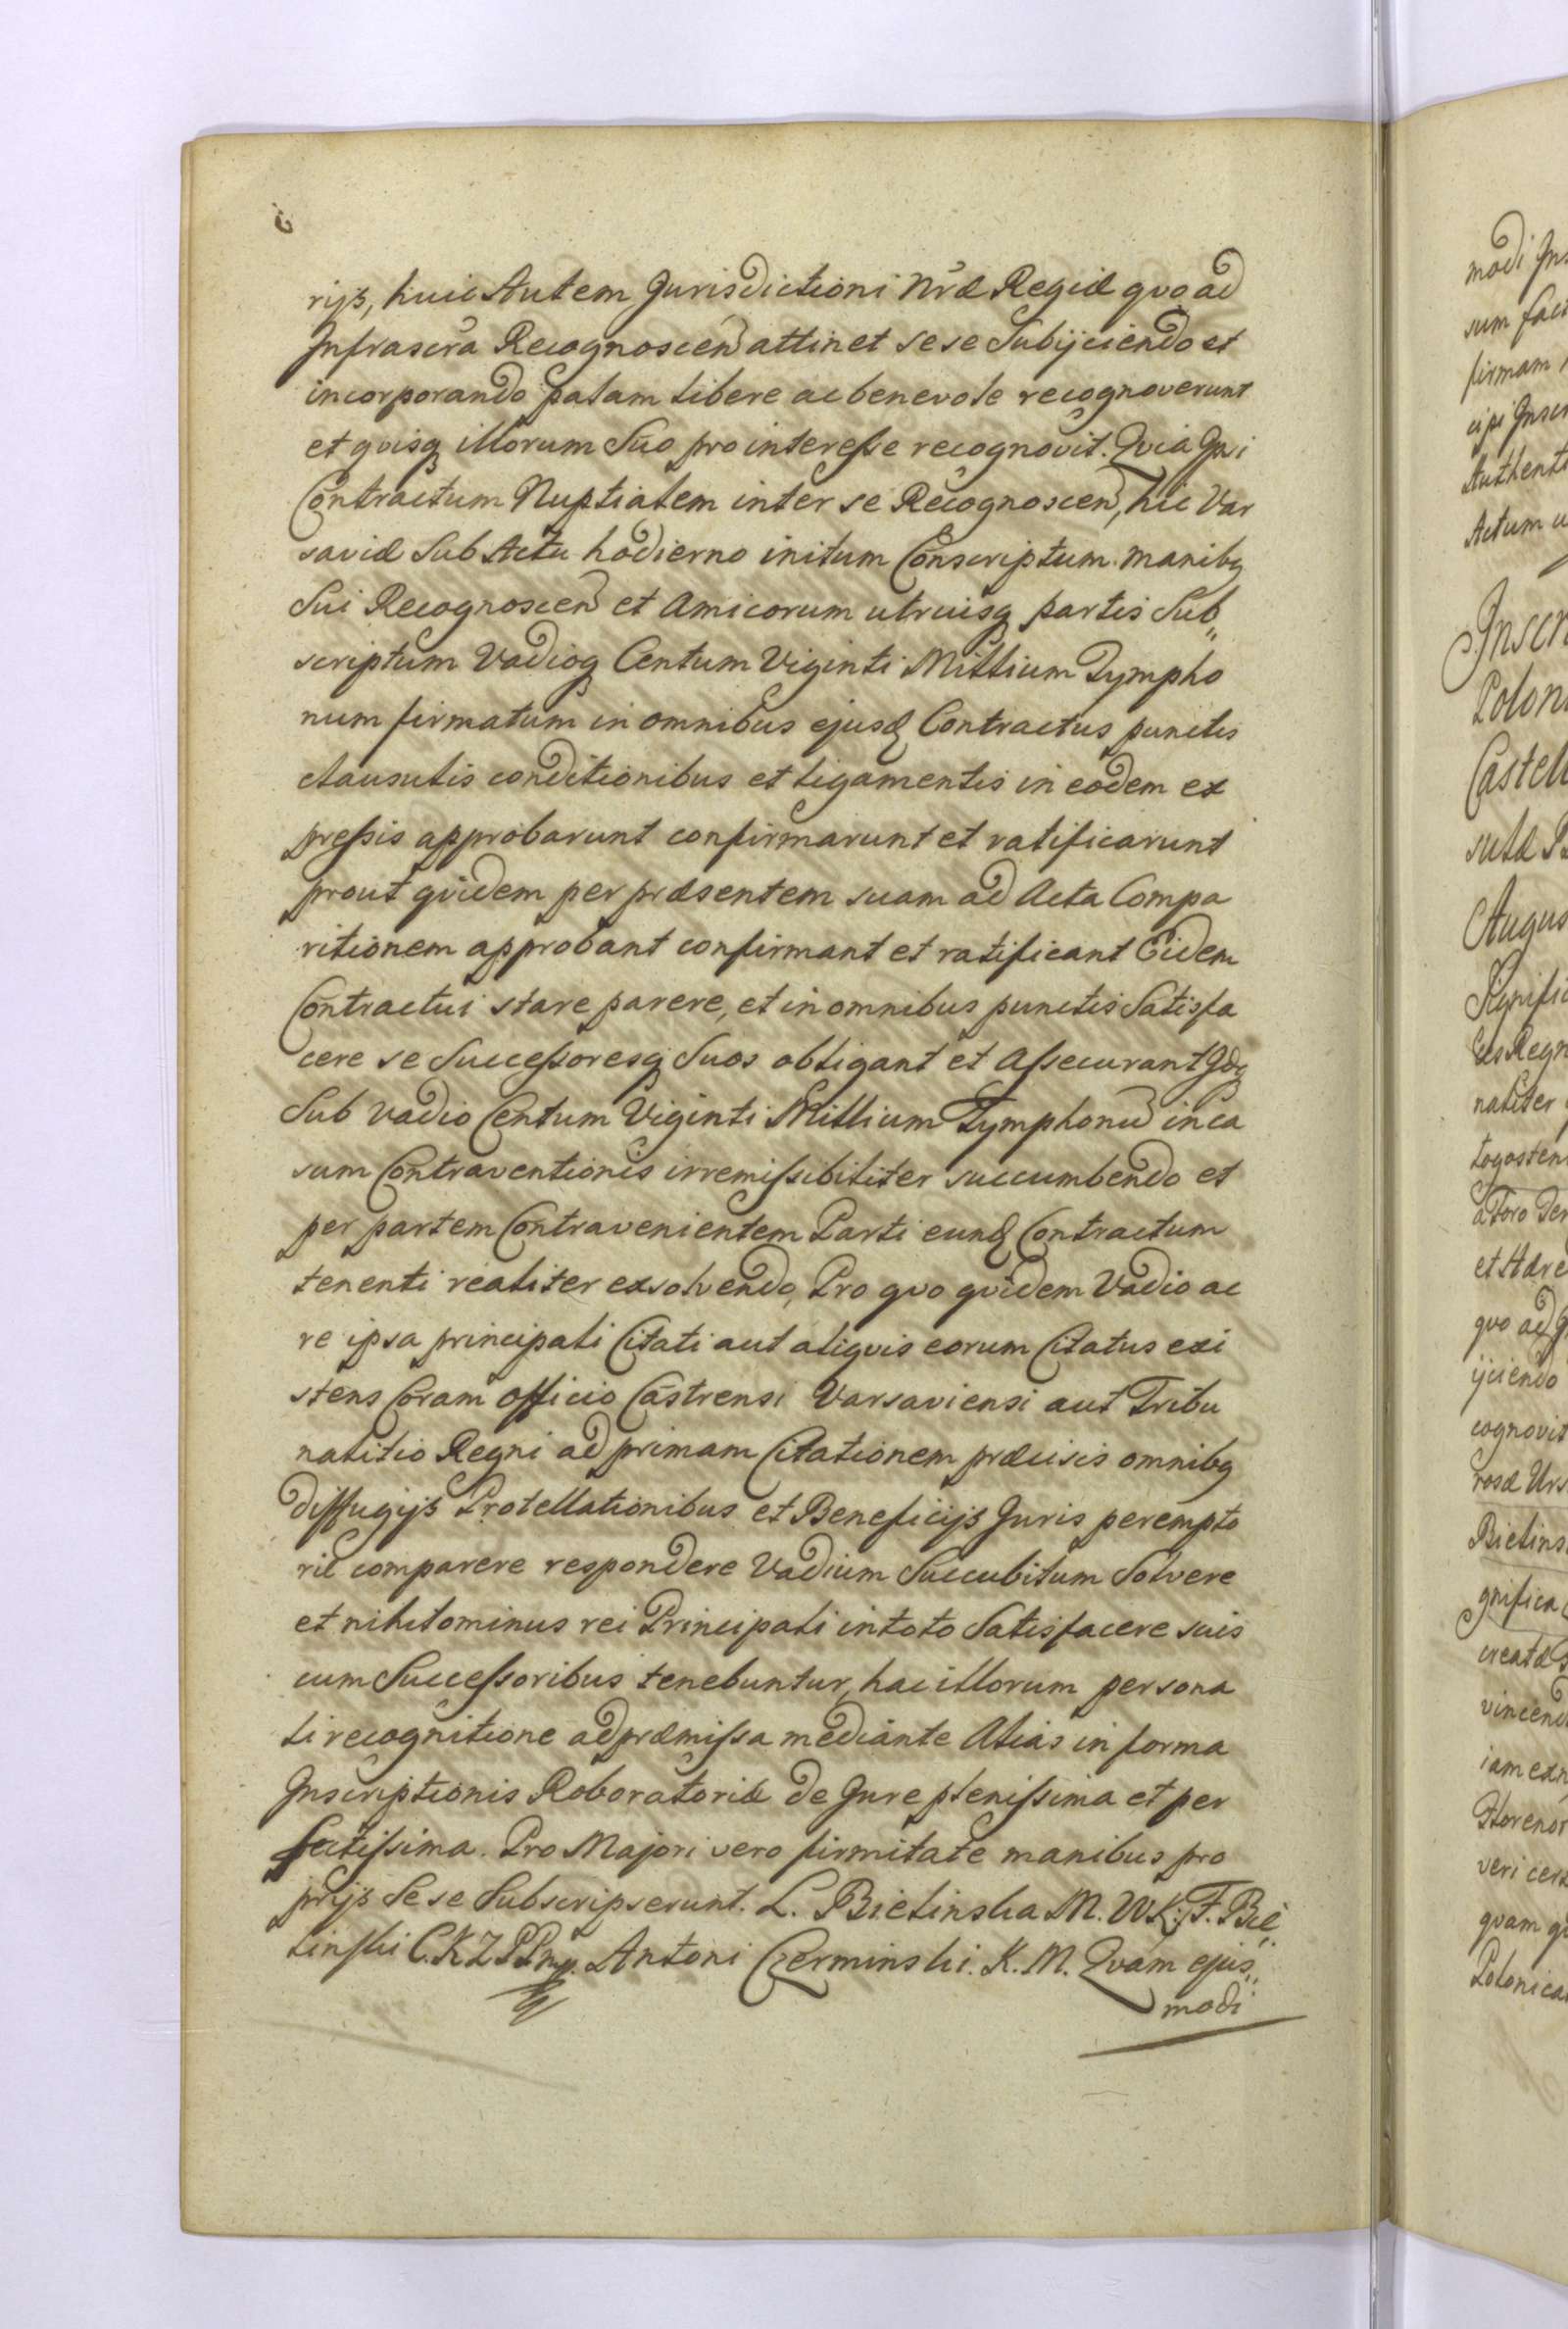 rijs, huic Autem Jurisdictioni Nræ Regiæ quo ad
Infrascra Recognoscen attinet sese Subijciendo et
incorporando palam libere ac benevole recognoverunt
et quisq illorum Suo pro interesse recognovit. Quia Ipsi
Contractum Nuptialem inter se Recognoscen, hic Var
saviæ Sub Actu hodierno initum Conscriptum manibq
Sui Recognoscen et Amicorum utriusq partis Sub„
scriptum Vadioq Centum Viginti Millium Tympho
num firmatum in omnibus ejusd Contractus punctis
clausulis conditionibus et ligamentis in eodem ex
pressis approbarunt confirmarunt et ratificarunt
prout quidem per præsentem suam ad Acta Compa
ritionem approbant confirmant et ratificant Eidem
Contractui stare parere, et in omnibus punctis Satisfa
cere se Successoresq Suos obligant et Assecurant Idq
Sub vadio Centum Viginti Millium Tymphonu in ca
sum Contraventionis irremissibiliter succumbendo et
per partem Contravenientem Parti eund Contractum
tenenti realiter exsolvendo, Pro quo quidem Vadio ac
re ipsa principali Citati aut aliquis eorum Citatus exi
stens Coram Officio Castrensi Varsaviensi aut Tribu
nalitio Regni ad primam Citationem præcisis omnibq
diffugijs Protellationibus et Beneficijs Juris perempto
rie comparere respondere Vadium Succubitum Solvere
et nihilominus rei Principali in toto Satisfacere suis
cum Successoribus tenebuntur, hac illorum persona
li recognitione ad præmissa mediante Alias in forma
Inscriptionis Roboratoriæ de Jure plenissima et per
fectissima. Pro Majori vero firmitate manibus pro
prijs Sese Subscripserunt. L. Bielinska M. W. K. F. Bie„
linski C. K. Z. P. Antoni Czerminski. K. M. Quam ejus„
modi
modi
sum fact
firmam
Authenti
Actum
Inscr
Polon
Castell
Augus
Regn
naliter
et Hære
quo ad
ijciendo
cognovit
rosæ Urs
Bielins
gnifica
creatæ
vincend
quam
Polonica